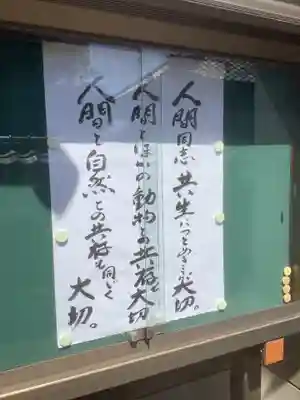 人間同志共生につとめる事が大切。
人間とほかの動物との共存も大切
人間と自然との共存も同じく大切。